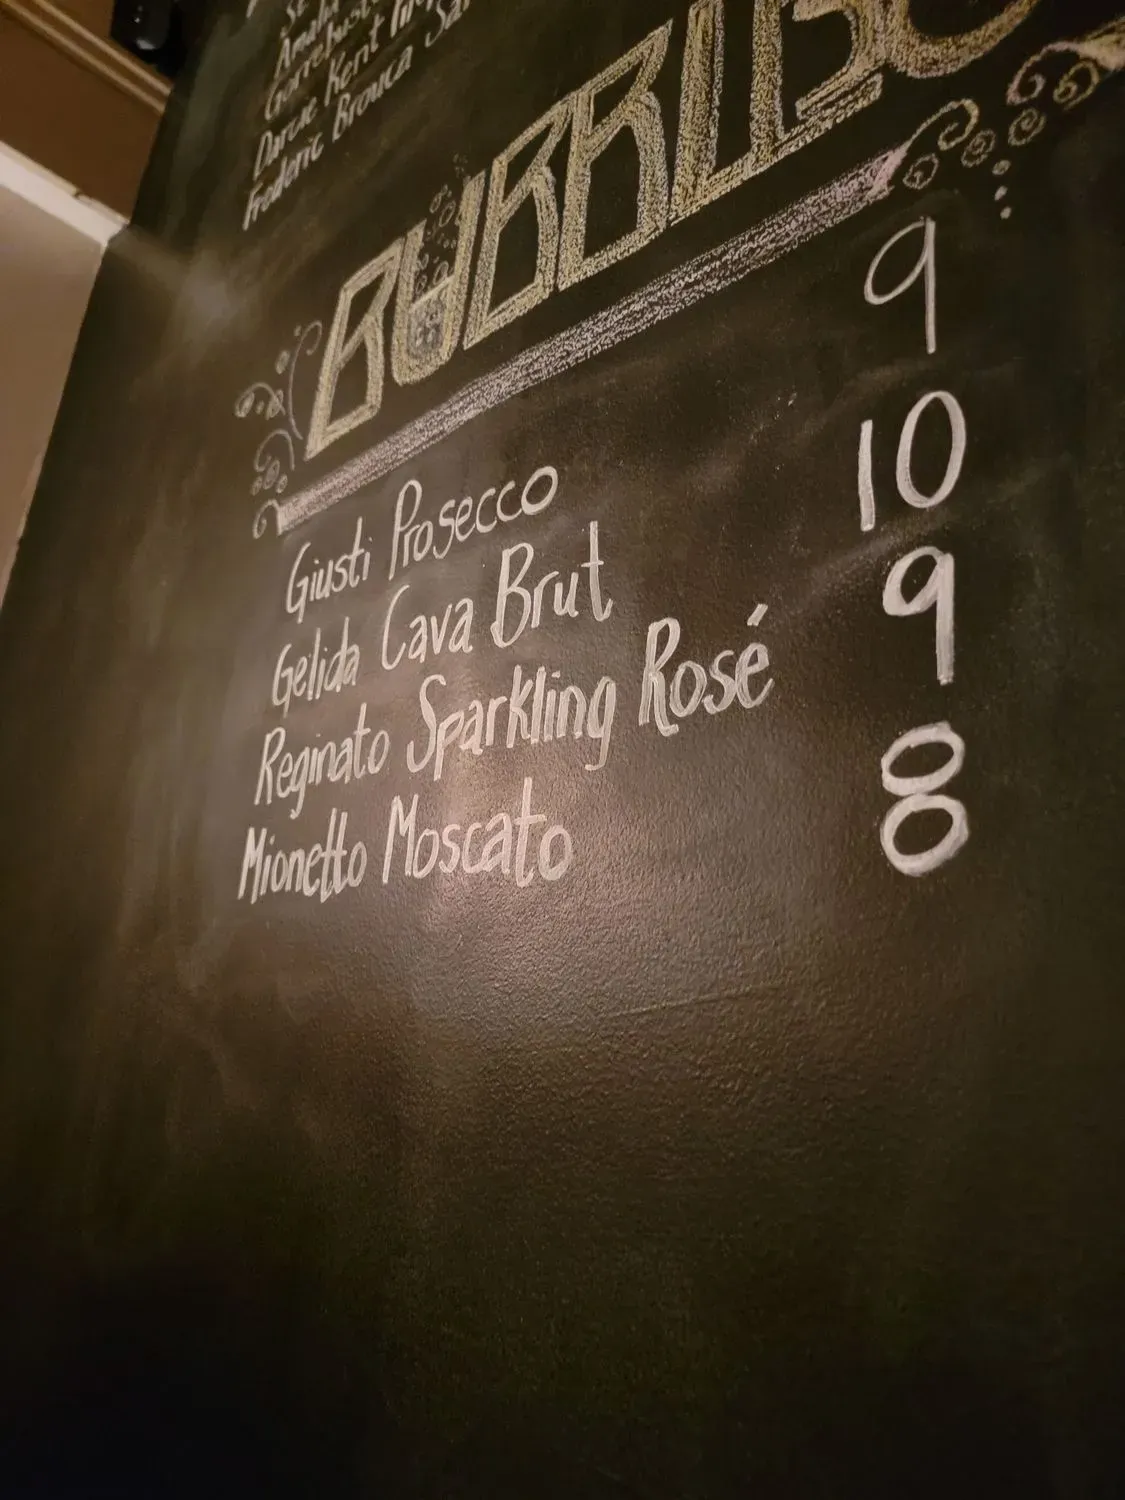 St.
Amalia
Darcie Kent
Frederic Brouca
BUBBLES
Giusti Prosecco 9
Gelida Cava Brut 10
Reginato Sparkling Rosé 9
Mionetto Moscato 8